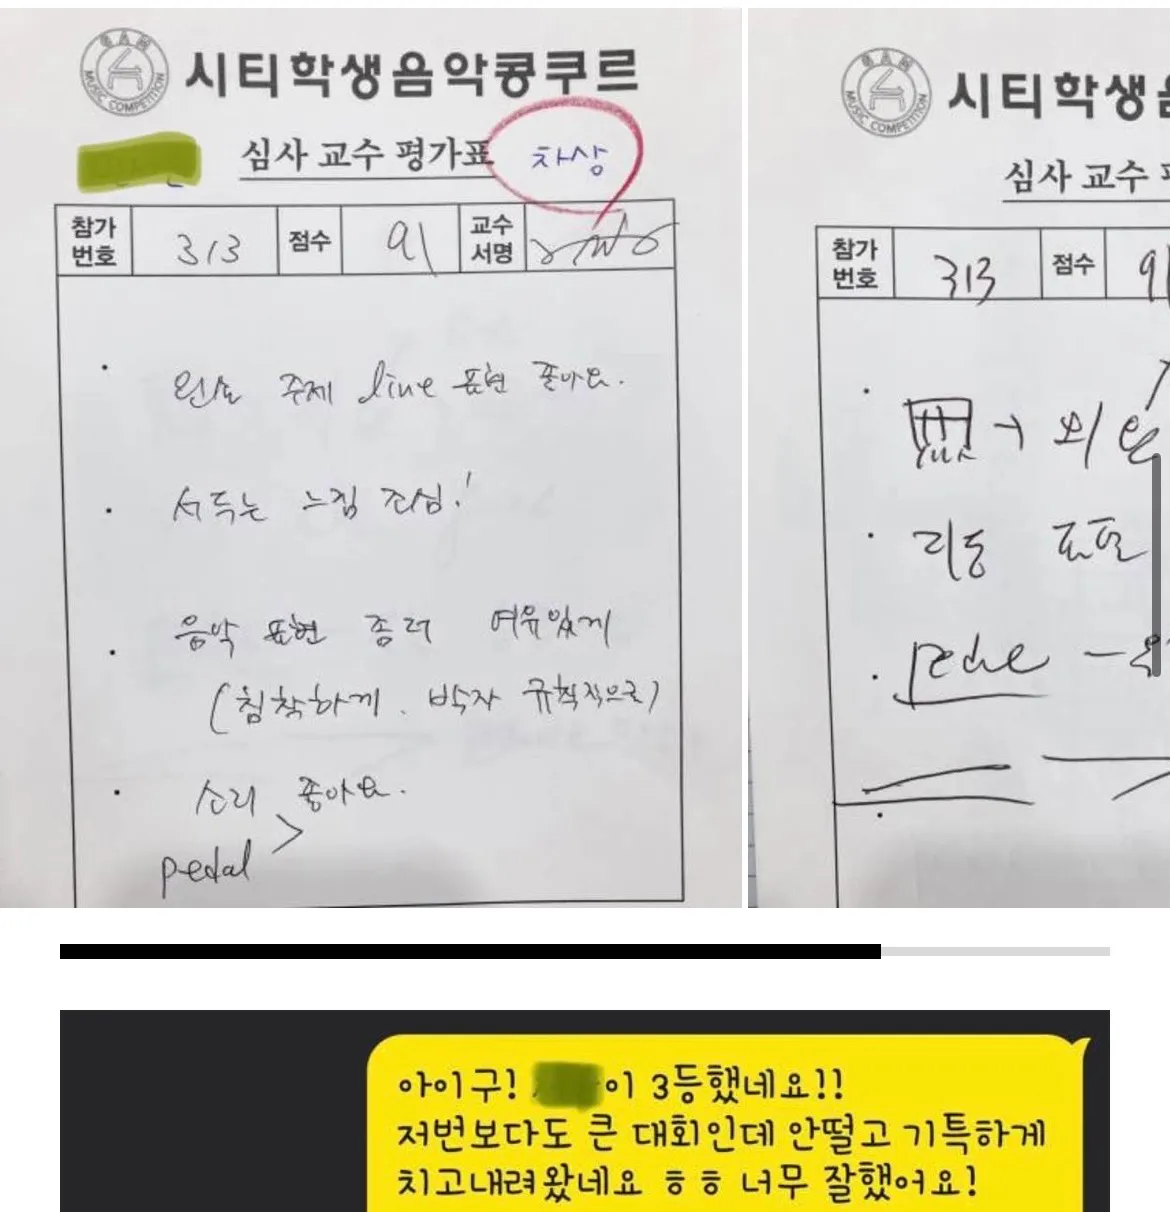 시티학생음악콩쿠르
심사 교수 평가표
차상
참가번호 313 점수 91 교수서명
· 왼손 주제 line 표현 좋아요.
· 서두는 느낌 조심!
· 음악 표현 좀 더 여유있게
(침착하게. 박자 규칙적으로)
· 소리 좋아요.
pedal
MUSIC COMPETITION
시티학생
심사 교수
참가번호 313 점수 91
리듬 표현
MUSIC COMPETITION
아이구! 이 3등했네요!!
저번보다도 큰 대회인데 안떨고 기특하게
치고내려왔네요 ㅎㅎ 너무 잘했어요!